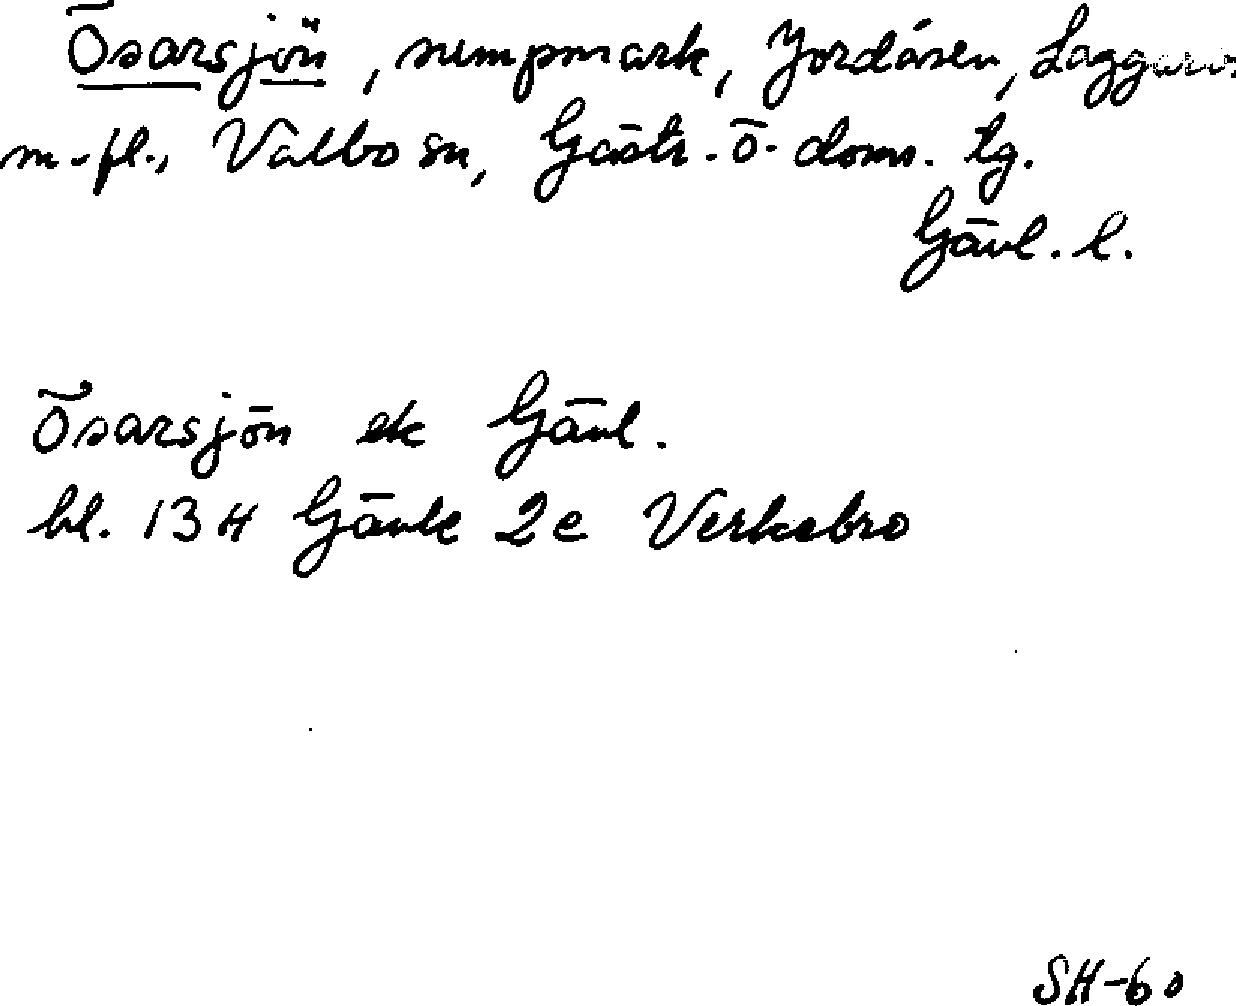 Ösarsjön, sumpmark, Jordåsen, Laggarv.
m. fl., Valbo sn, Gästr. ö. doms. tg.
Gävl. l.
Ösarsjön ek Gävl.
bl. 13H Gävle 2e Verkebro
SH-60